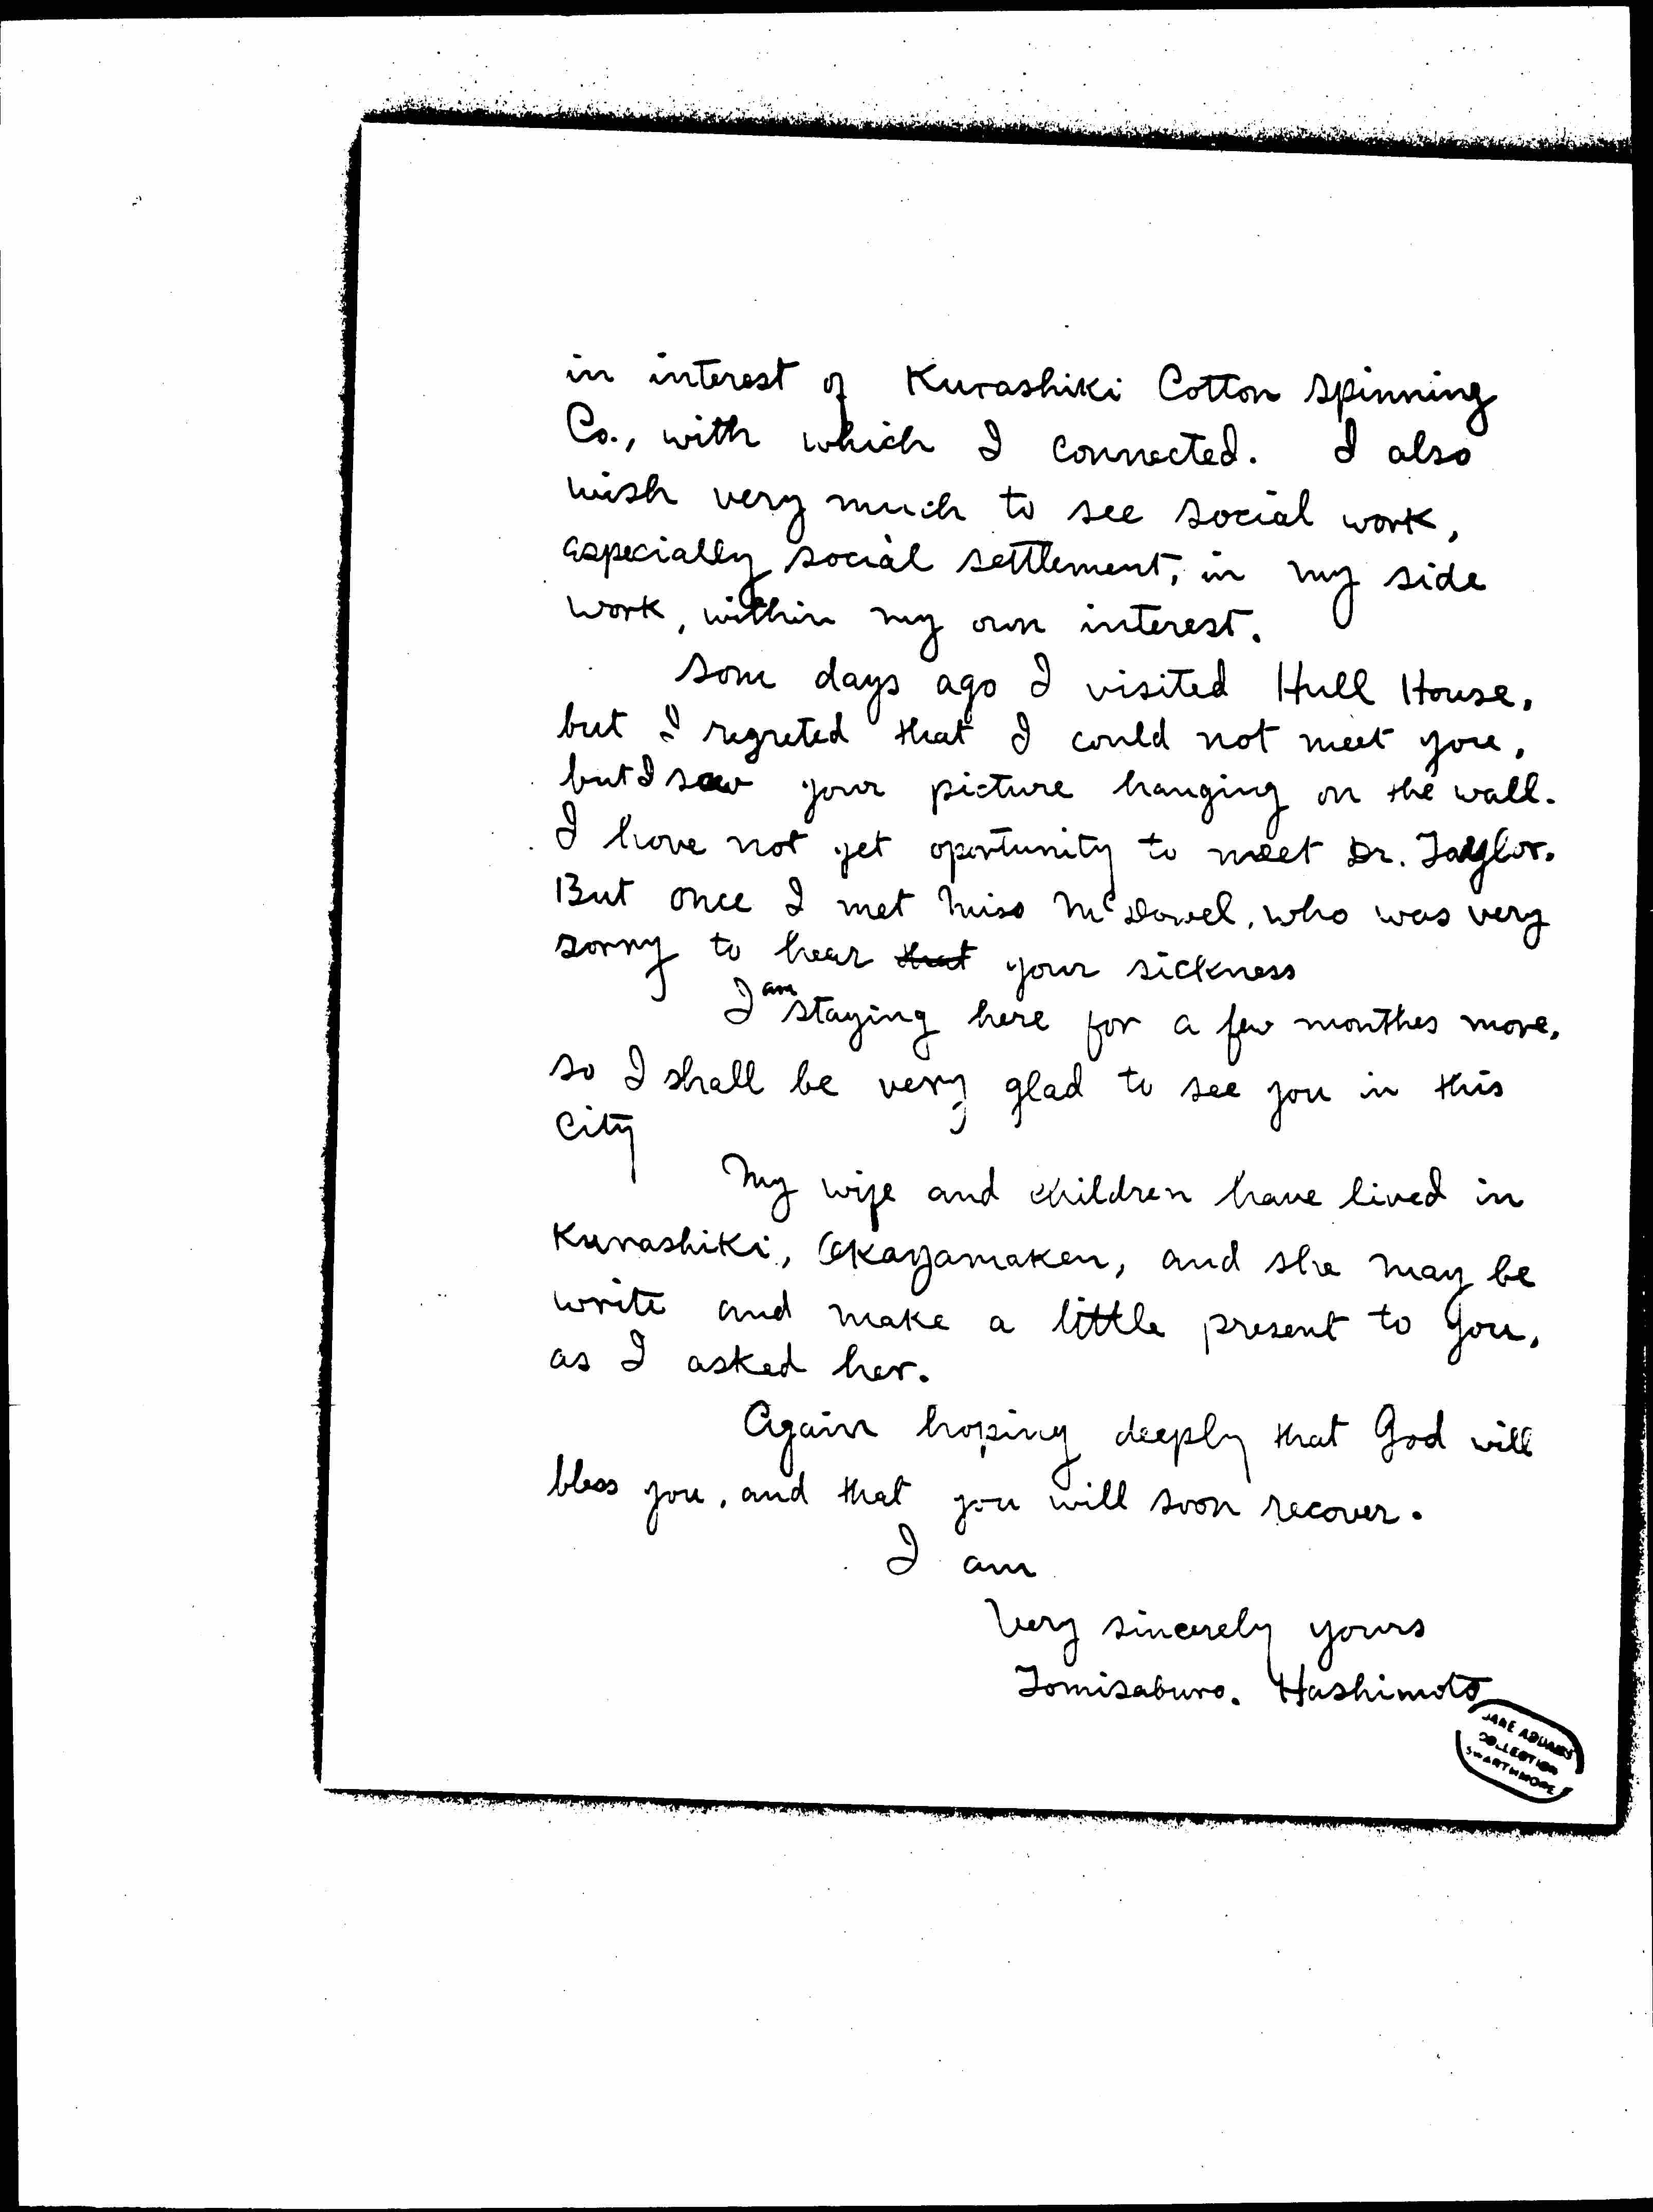 in interest of Kurashiki Cotton spinning
Co., with which I connected. I also
wish very much to see social work,
especially social settlement, in my side
work, within my own interest.
Some days ago I visited Hull House,
but I regreted that I could not meet you,
but I saw your picture hanging on the wall.
I have not yet oportunity to meet Dr. Taylor.
But once I met Miss McDowel, who was very
sorry to hear that your sickness
I am staying here for a few monthes more,
so I shall be very glad to see you in this
city
My wife and children have lived in
Kurashiki, Okayamaken, and she may be
write and make a little present to you,
as I asked her.
Again hoping deeply that God will
bless you, and that you will soon recover.
I am
Very sincerely yours
Tomisaburo. Hashimoto
JANE ADDAMS
COLLECTION
SWARTHMORE